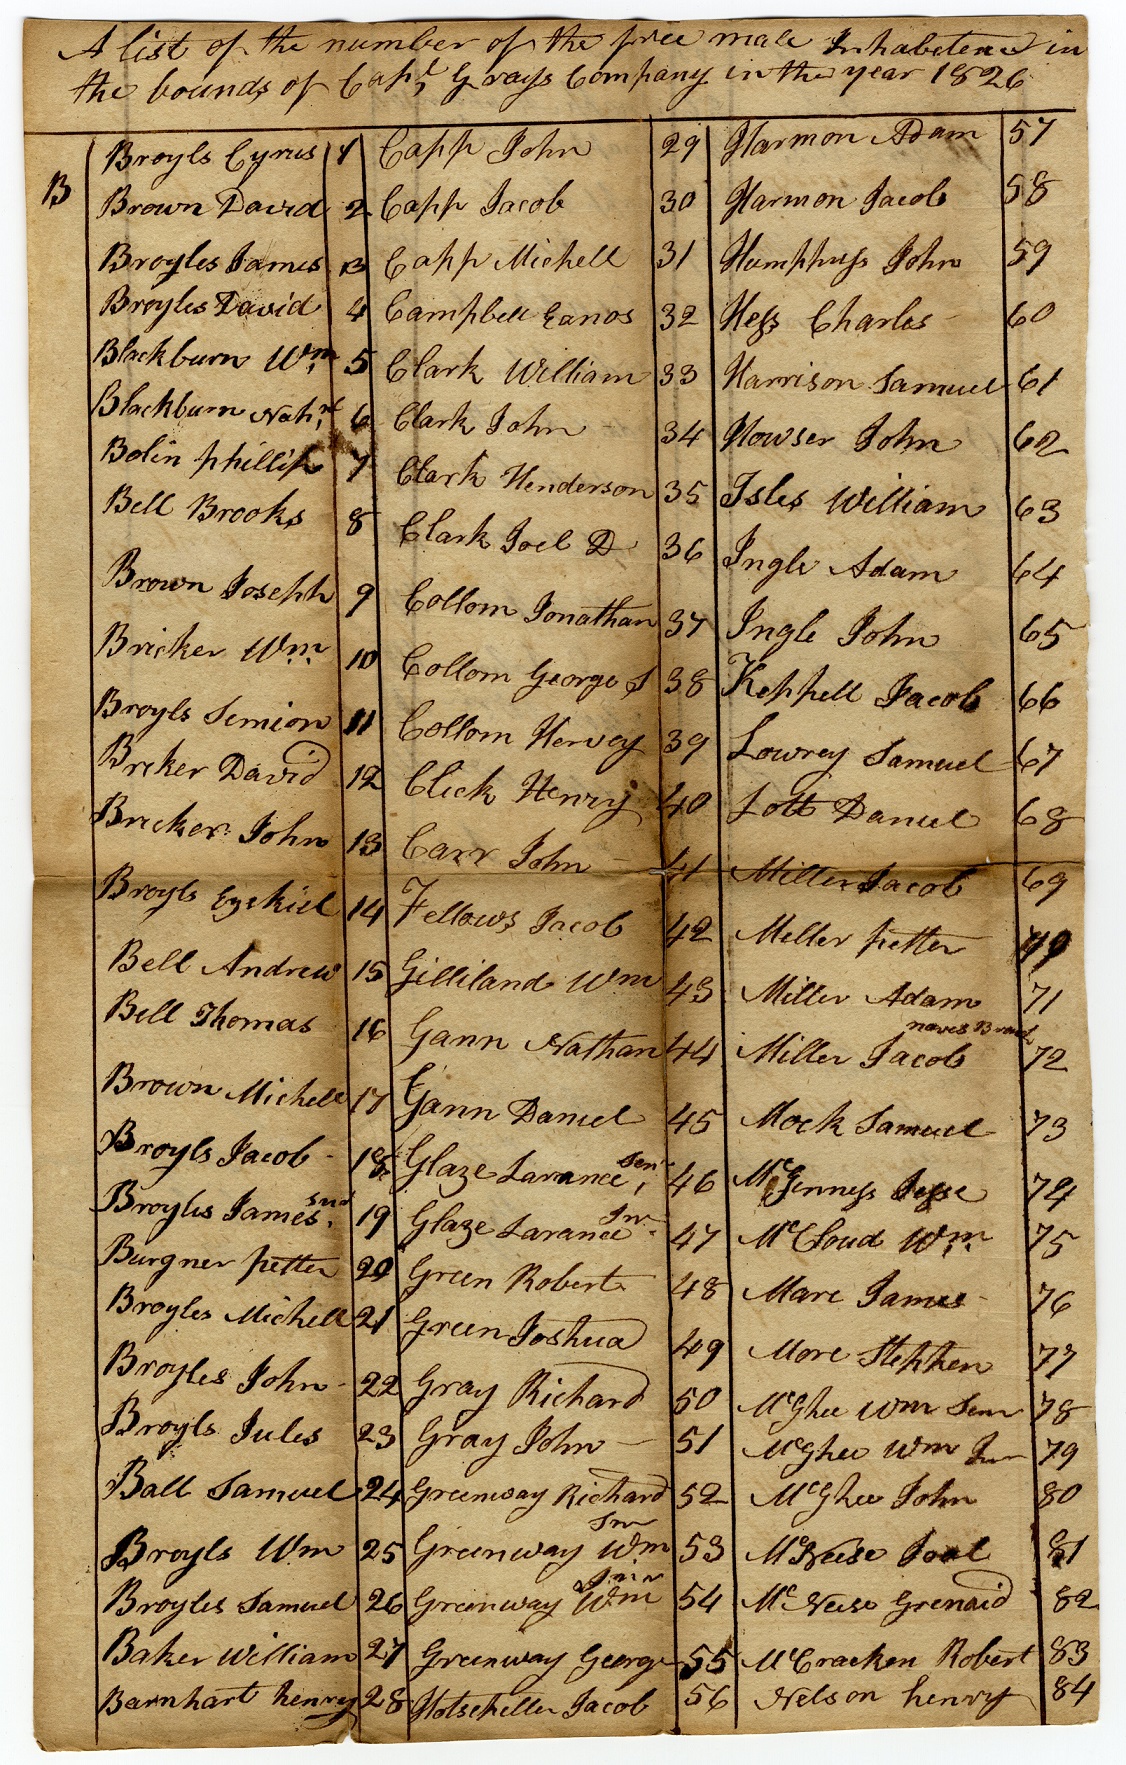 A list of the number of the free male Inhabetence in
the bounds of Capt, Grays Company in the year 1826
B
Broyls Cyrus 1
Brown David 2
Broyles James 3
Broyles David 4
Blackburn Wm, 5
Blackburn Nath,l 6
Bolin phillip 7
Bell Brooks 8
Brown Joseph 9
Bricker Wm 10
Broyls Simion 11
Bricker David 12
Bricker John 13
Broyls Ezekiel 14
Bell Andrew 15
Bell Thomas 16
Brown Michell 17
Broyls Jacob - 18
Broyles James Snr. 19
Burgner petter 20
Broyles Michell 21
Broyles John - 22
Broyls Jules 23
Ball Samuel 24
Broyls Wm 25
Broyles Samuel 26
Baker William 27
Barnhart henry 28
Capp John 29
Capp Jacob 30
Capp Michell 31
Campbell Eanos 32
Clark William 33
Clark John - 34
Clark Henderson 35
Clark Joel D 36
Collom Jonathan 37
Collom George S 38
Collom Hervey 39
Click Henry 40
Carr John - 41
Fellows Jacob 42
Gilliland Wm 43
Gann Nathan 44
Gann Daniel 45
Glaze Larance Sen, 46
Glaze Larance Jnr. 47
Green Robert 48
Green Joshua 49
Gray Richard 50
Gray John - 51
Greenway Richard 52
Greenway Wm Snr 53
Greenway Wm Junr 54
Greenway George 55
Hotsheller Jacob 56
Harmon Adam 57
Harmon Jacob 58
Humphrys John 59
Hess Charles - 60
Harrison Samuel 61
Howser John 62
Isles William 63
Ingle Adam 64
Ingle John 65
Keppell Jacob 66
Lowrey Samuel 67
Lott Daniel 68
Miller Jacob 69
Meller petter 70
Miller Adam 71
Miller Jacob 72
Mock Samuel 73
McGinness Jesse 74
McCloud Wm 75
Mare James - 76
More Stephen 77
McGhee Wm Senr 78
McGhee Wm Jnr 79
McGhee John 80
McNeese Joal 81
McNeese Grenaid 82
McCracken Robert 83
Nelson henry 84